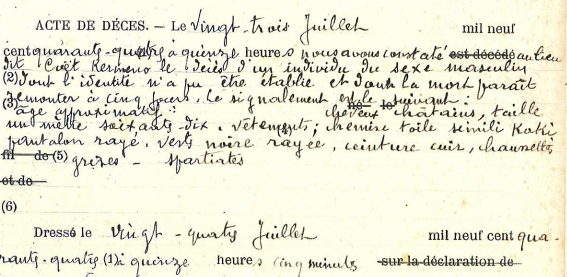 ACTE DE DÉCES. — Le Vingt-trois Juillet mil neuf
cent quarante-quatre à quinze heures nous avons constaté est décédé au lieu
dit Coët Kervieno le décès d'un individu du sexe masculin
(2) dont l'identité n'a pu être établie et dont la mort paraît
(3) remonter à cinq jours. le signalement est le suivant : né le
âge approximatif : cheveux châtains, taille
un mètre soixante-dix. Vêtements ; chemise toile simili Kaki
pantalon rayé. Veste noire rayée, ceinture cuir, chaussettes
fil de (5) grises - spartiates
et de
(6)
Dressé le Vingt-quatre Juillet mil neuf cent qua-
rante-quatre (1) à quinze heures cinq minutes sur la déclaration de